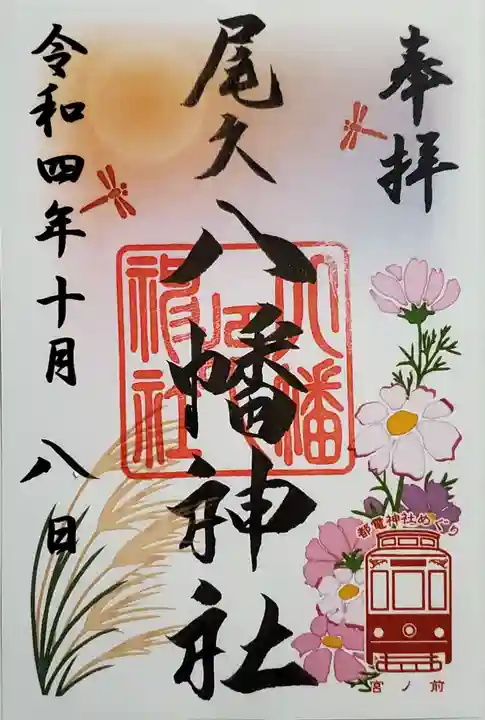 奉拝
尾久八幡神社
令和四年十月八日
八幡
神社
都電神社めぐり
宮ノ前